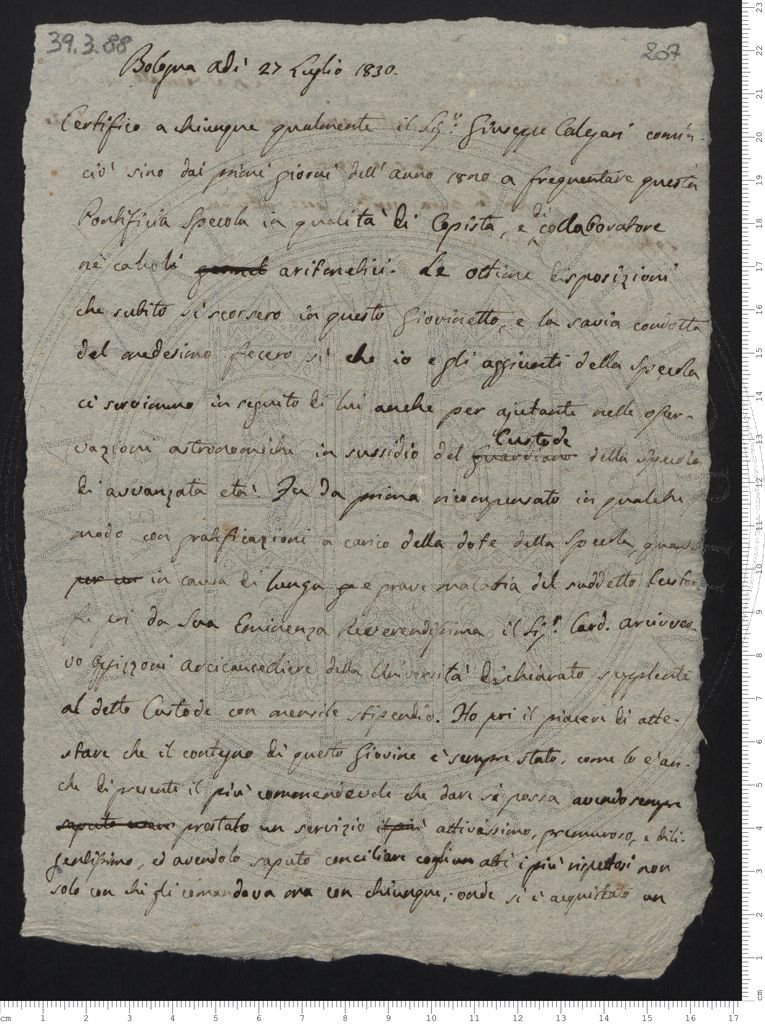 39.3.88
207
Bologna adì 27 Luglio 1830.
Certifico a chiunque qualmente il Sig.r Giuseppe Calegari comin-
ciò sino dai primi giorni dell'anno a frequentare questa
Pontificia Specola in qualità di Copista, e di collaboratore
ne' calcoli aritmetici. Le ottime disposizioni
che subito si scorsero in questo Giovinetto, e la savia condotta
del medesimo fecero sì che io e gli aggiunti della Specola
ci servimmo in seguito di lui anche per ajutante nelle osser-
vazioni astronomiche in sussidio del guardiano Custode della Specola
di avvanzata età. Fu da prima ricompensato in qualche
modo con gratificazioni a carico della dote della Specola, quando
per in causa di lunga e grave malattia del suddetto Custode
fu poi da Sua Eminenza Reverendissima il Sig.r Card. arcivesco
vo Oppizzoni arcicancelliere della Università dichiarato supplente
al detto Custode con mensile stipendio. Ho poi il piacere di atte-
stare che il contegno di questo Giovine è sempre stato, come lo è an-
che di presente il più commendevole che dare si possa avendo sempre
saputo prestato un servizio il più attivissimo, premuroso, e dili-
gentissimo, ed avendolo saputo conciliare cogli atti i più rispettosi non
solo con chi gli comandava ma con chiunque, onde si è acquistato un